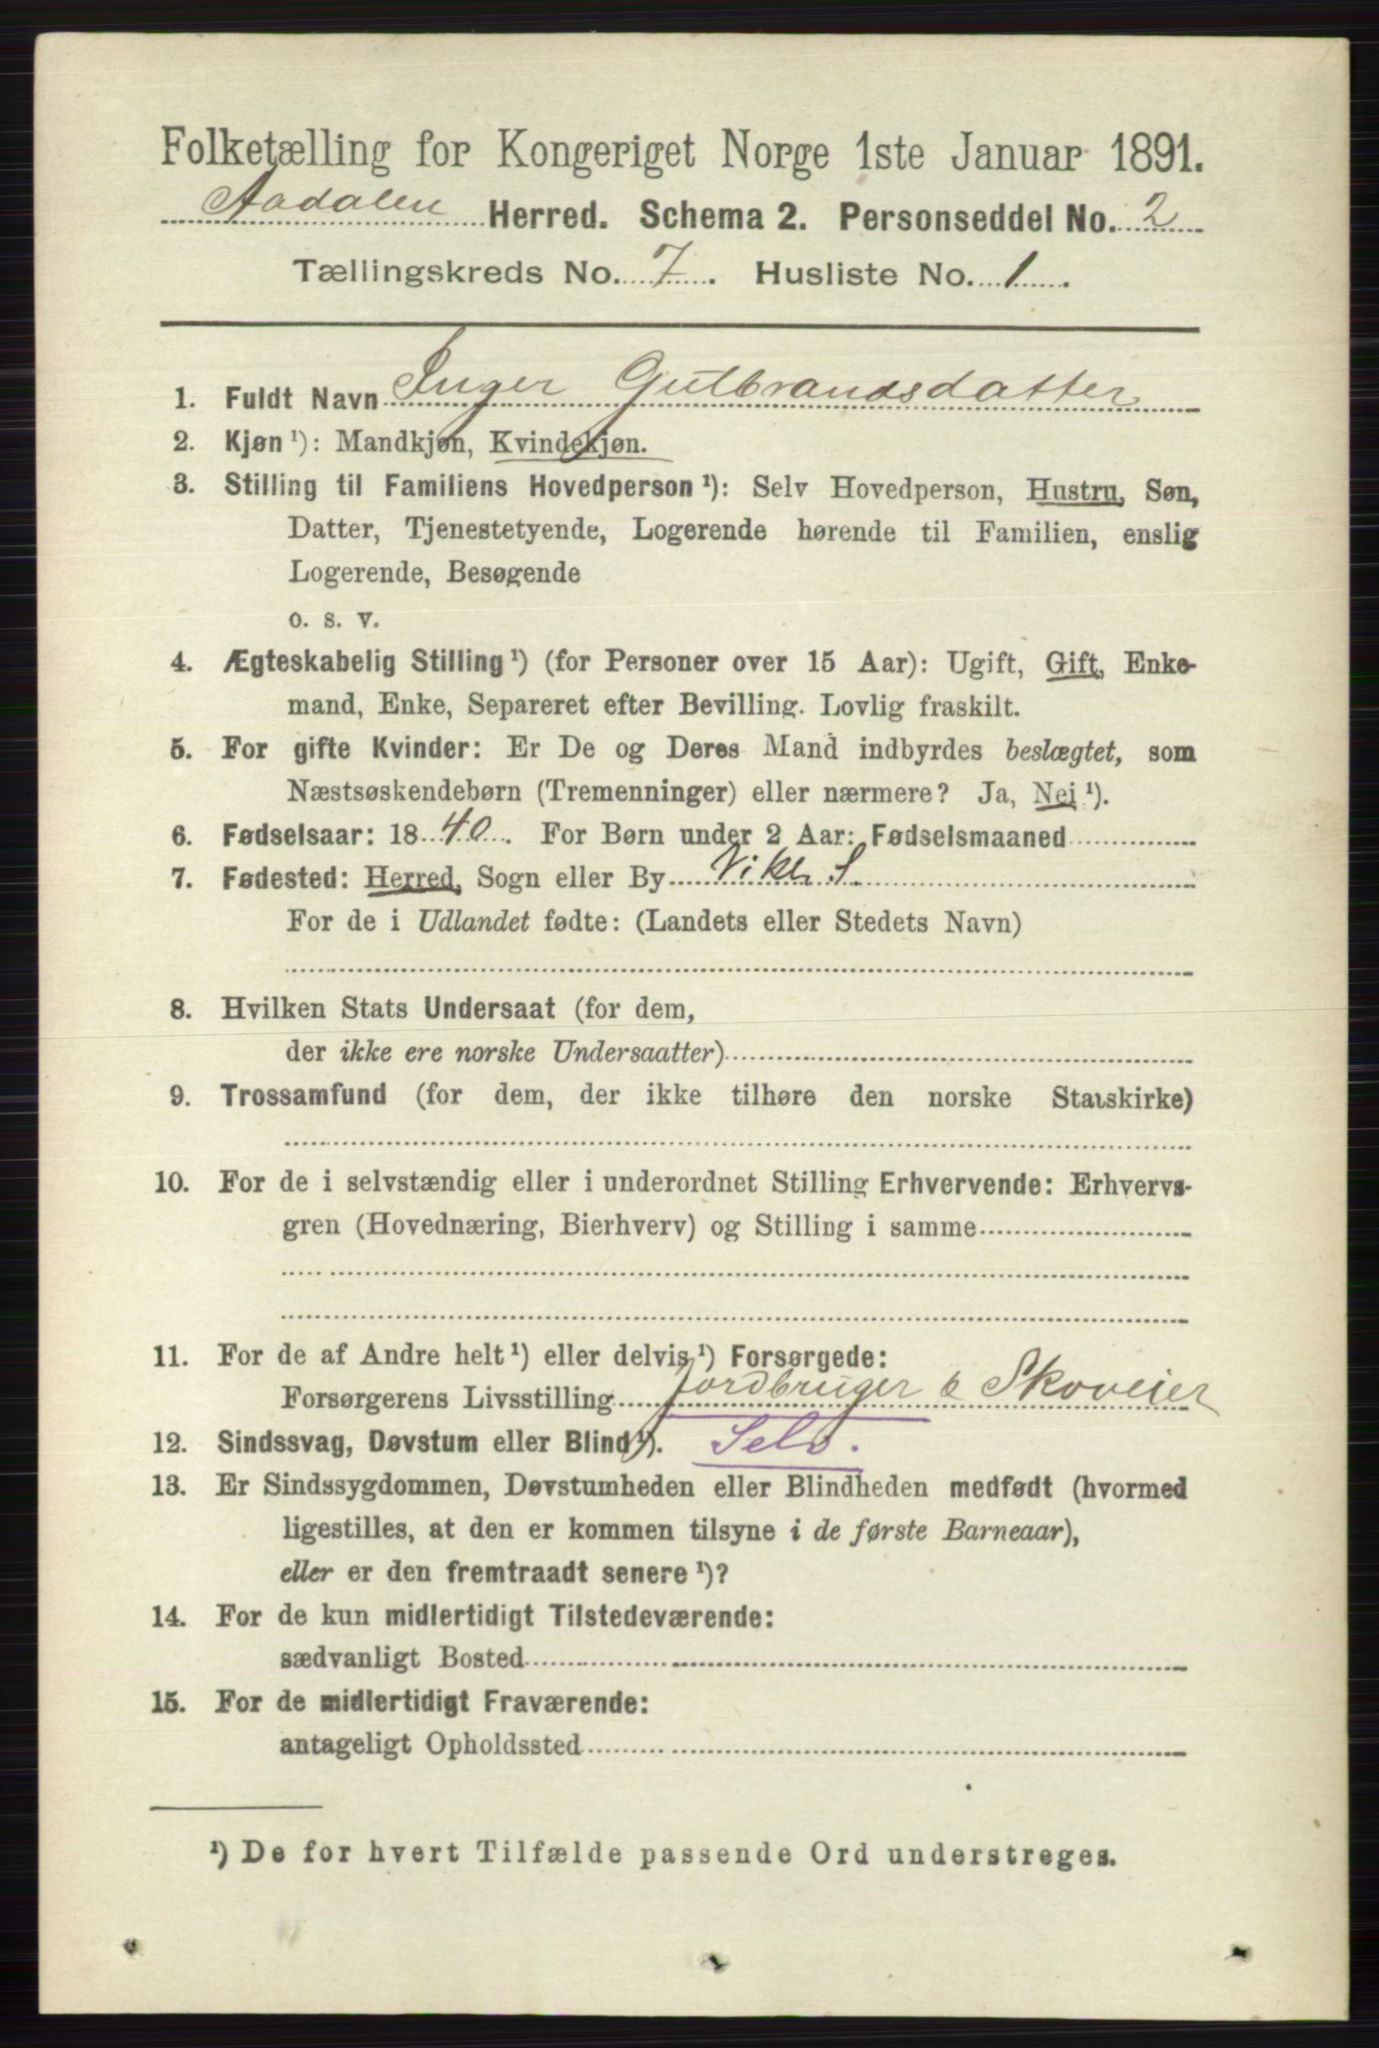 Folketælling for Kongeriget Norge 1ste Januar 1891.
Aadalen Herred. Schema 2. Personseddel No. 2
Tællingskreds No. 7. Husliste No. 1.
1. Fuldt Navn Inger Gulbrandsdatter
2. Kjøn ¹): Mandkjøn, Kvindekjøn.
3. Stilling til Familiens Hovedperson ¹): Selv Hovedperson, Hustru, Søn,
Datter, Tjenestetyende, Logerende hørende til Familien, enslig
Logerende, Besøgende
o. s. v.
4. Ægteskabelig Stilling ¹) (for Personer over 15 Aar): Ugift, Gift, Enke-
mand, Enke, Separeret efter Bevilling. Lovlig fraskilt.
5. For gifte Kvinder: Er De og Deres Mand indbyrdes beslægtet, som
Næstsøskendebørn (Tremenninger) eller nærmere? Ja, Nei ¹).
6. Fødselsaar: 1840. For Børn under 2 Aar: Fødselsmaaned
7. Fødested: Herred, Sogn eller By Viker S.
For de i Udlandet fødte: (Landets eller Stedets Navn)
8. Hvilken Stats Undersaat (for dem,
der ikke ere norske Undersaatter)
9. Trossamfund (for dem, der ikke tilhøre den norske Statskirke)
10. For de i selvstændig eller i underordnet Stilling Erhvervende: Erhvervs-
gren (Hovednæring, Bierhverv) og Stilling i samme
11. For de af Andre helt ¹) eller delvis ¹) Forsørgede:
Forsørgerens Livsstilling Jordbruger & Skoveier
12. Sindssvag, Døvstum eller Blind ¹). Selv.
13. Er Sindssygdommen, Døvstumheden eller Blindheden medfødt (hvormed
ligestilles, at den er kommen tilsyne i de første Barneaar),
eller er den fremtraadt senere ¹)?
14. For de kun midlertidigt Tilstedeværende:
sædvanligt Bosted
15. For de midlertidigt Fraværende:
antageligt Opholdssted
¹) De for hvert Tilfælde passende Ord understreges.